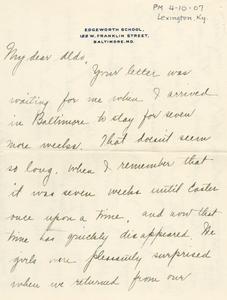 PM 4-10-07
Lexington, Ky.
EDGEWORTH SCHOOL,
122 W. FRANKLIN STREET,
BALTIMORE, MD.
My dear
Your letter was
waiting for me when I arrived
in Baltimore to stay for seven
more weeks. That doesn't seem
so long, when I remember that
it was seven weeks until Easter
once upon a time, and now that
time has quickly disappeared. We
girls were pleasantly surprised
when we returned from our